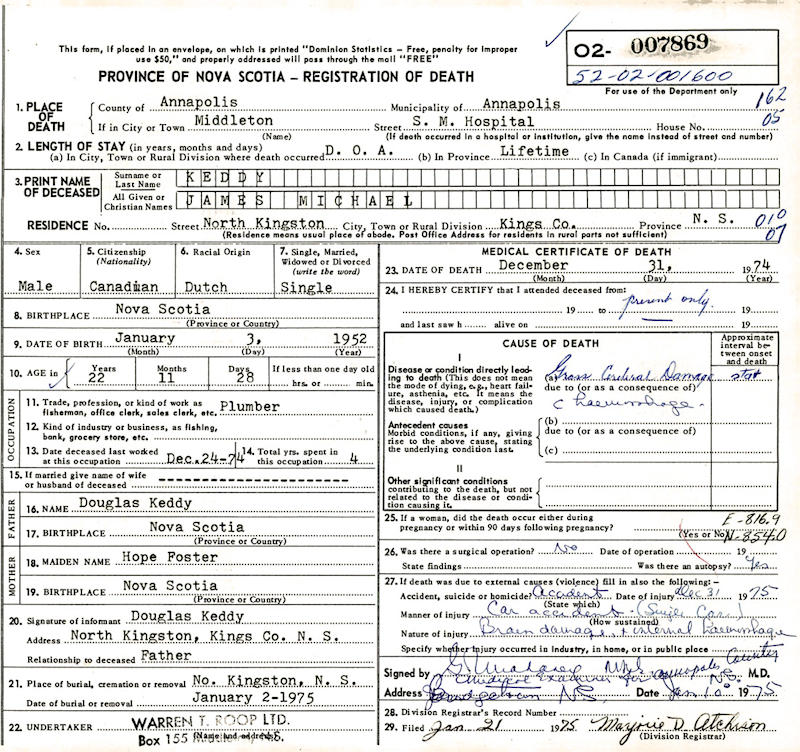 This form, if placed in an envelope, on which is printed "Dominion Statistics — Free, penalty for improper
use $50," and properly addressed will pass through the mail "FREE"
PROVINCE OF NOVA SCOTIA — REGISTRATION OF DEATH
02- 007869
52-02-001600
For use of the Department only
1. PLACE OF DEATH
County of Annapolis Municipality of Annapolis 162
If in City or Town Middleton Street S. M. Hospital House No. 05
(Name) (If death occurred in a hospital or institution, give the name instead of street and number)
2. LENGTH OF STAY (in years, months and days)
(a) In City, Town or Rural Division where death occurred D. O. A. (b) In Province Lifetime (c) In Canada (if immigrant)
3. PRINT NAME OF DECEASED
Surname or Last Name KEDDY
All Given or Christian Names JAMES MICHAEL
RESIDENCE No. Street North Kingston City, Town or Rural Division Kings Co. Province N. S. 010
(Residence means usual place of abode. Post Office Address for residents in rural parts not sufficient) 07
4. Sex
Male
5. Citizenship
(Nationality)
Canadian
6. Racial Origin
Dutch
7. Single, Married,
Widowed or Divorced
(write the word)
Single
8. BIRTHPLACE Nova Scotia
(Province or Country)
9. DATE OF BIRTH January 3, 1952
(Month) (Day) (Year)
10. AGE in Years 22 Months 11 Days 28 If less than one day old
hrs. or min.
OCCUPATION
11. Trade, profession, or kind of work as
fisherman, office clerk, sales clerk, etc. Plumber
12. Kind of industry or business, as fishing,
bank, grocery store, etc.
13. Date deceased last worked
at this occupation Dec.24-74
14. Total yrs. spent in
this occupation 4
15. If married give name of wife
or husband of deceased
FATHER
16. NAME Douglas Keddy
17. BIRTHPLACE Nova Scotia
(Province or Country)
MOTHER
18. MAIDEN NAME Hope Foster
19. BIRTHPLACE Nova Scotia
(Province or Country)
20. Signature of informant Douglas Keddy
Address North Kingston, Kings Co. N. S.
Relationship to deceased Father
21. Place of burial, cremation or removal No. Kingston, N. S.
Date of burial or removal January 2-1975
22. UNDERTAKER WARREN T. ROOP LTD.
(Name and address)
Box 155 N.S.
MEDICAL CERTIFICATE OF DEATH
23. DATE OF DEATH December 31, 1974
(Month) (Day) (Year)
24. I HEREBY CERTIFY that I attended deceased from:
19 to present only. 19
and last saw h alive on 19
CAUSE OF DEATH
Approximate
interval be-
tween onset
and death
I
Disease or condition directly lead-
ing to death (This does not mean
the mode of dying, e.g., heart fail-
ure, asthenia, etc. It means the
disease, injury, or complication
which caused death.)
(a) Gross Cerebral Damage stat
due to (or as a consequence of)
c haemorrhage.
Antecedent causes
Morbid conditions, if any, giving
rise to the above cause, stating
the underlying condition last.
(b)
due to (or as a consequence of)
(c)
II
Other significant conditions
contributing to the death, but not
related to the disease or condi-
tion causing it.
25. If a woman, did the death occur either during
pregnancy or within 90 days following pregnancy?
(Yes or No)
E-816.9
N-854.0
26. Was there a surgical operation? No Date of operation 19
State findings Was there an autopsy? Yes
27. If death was due to external causes (violence) fill in also the following:—
Accident, suicide or homicide? Accident Date of injury Dec 31 1975
(State which)
Manner of injury Car accident (Single Car)
(How sustained)
Nature of injury Brain damage & internal haemorrhage
Specify whether injury occurred in industry, in home, or in public place
Signed by M.D.
Medical Examiner for Annapolis County N.S.
Address Bridgetown NS. Date Jan 10 1975
28. Division Registrar's Record Number
29. Filed Jan 21 1975 Marjorie D. Atchison
(Division Registrar)